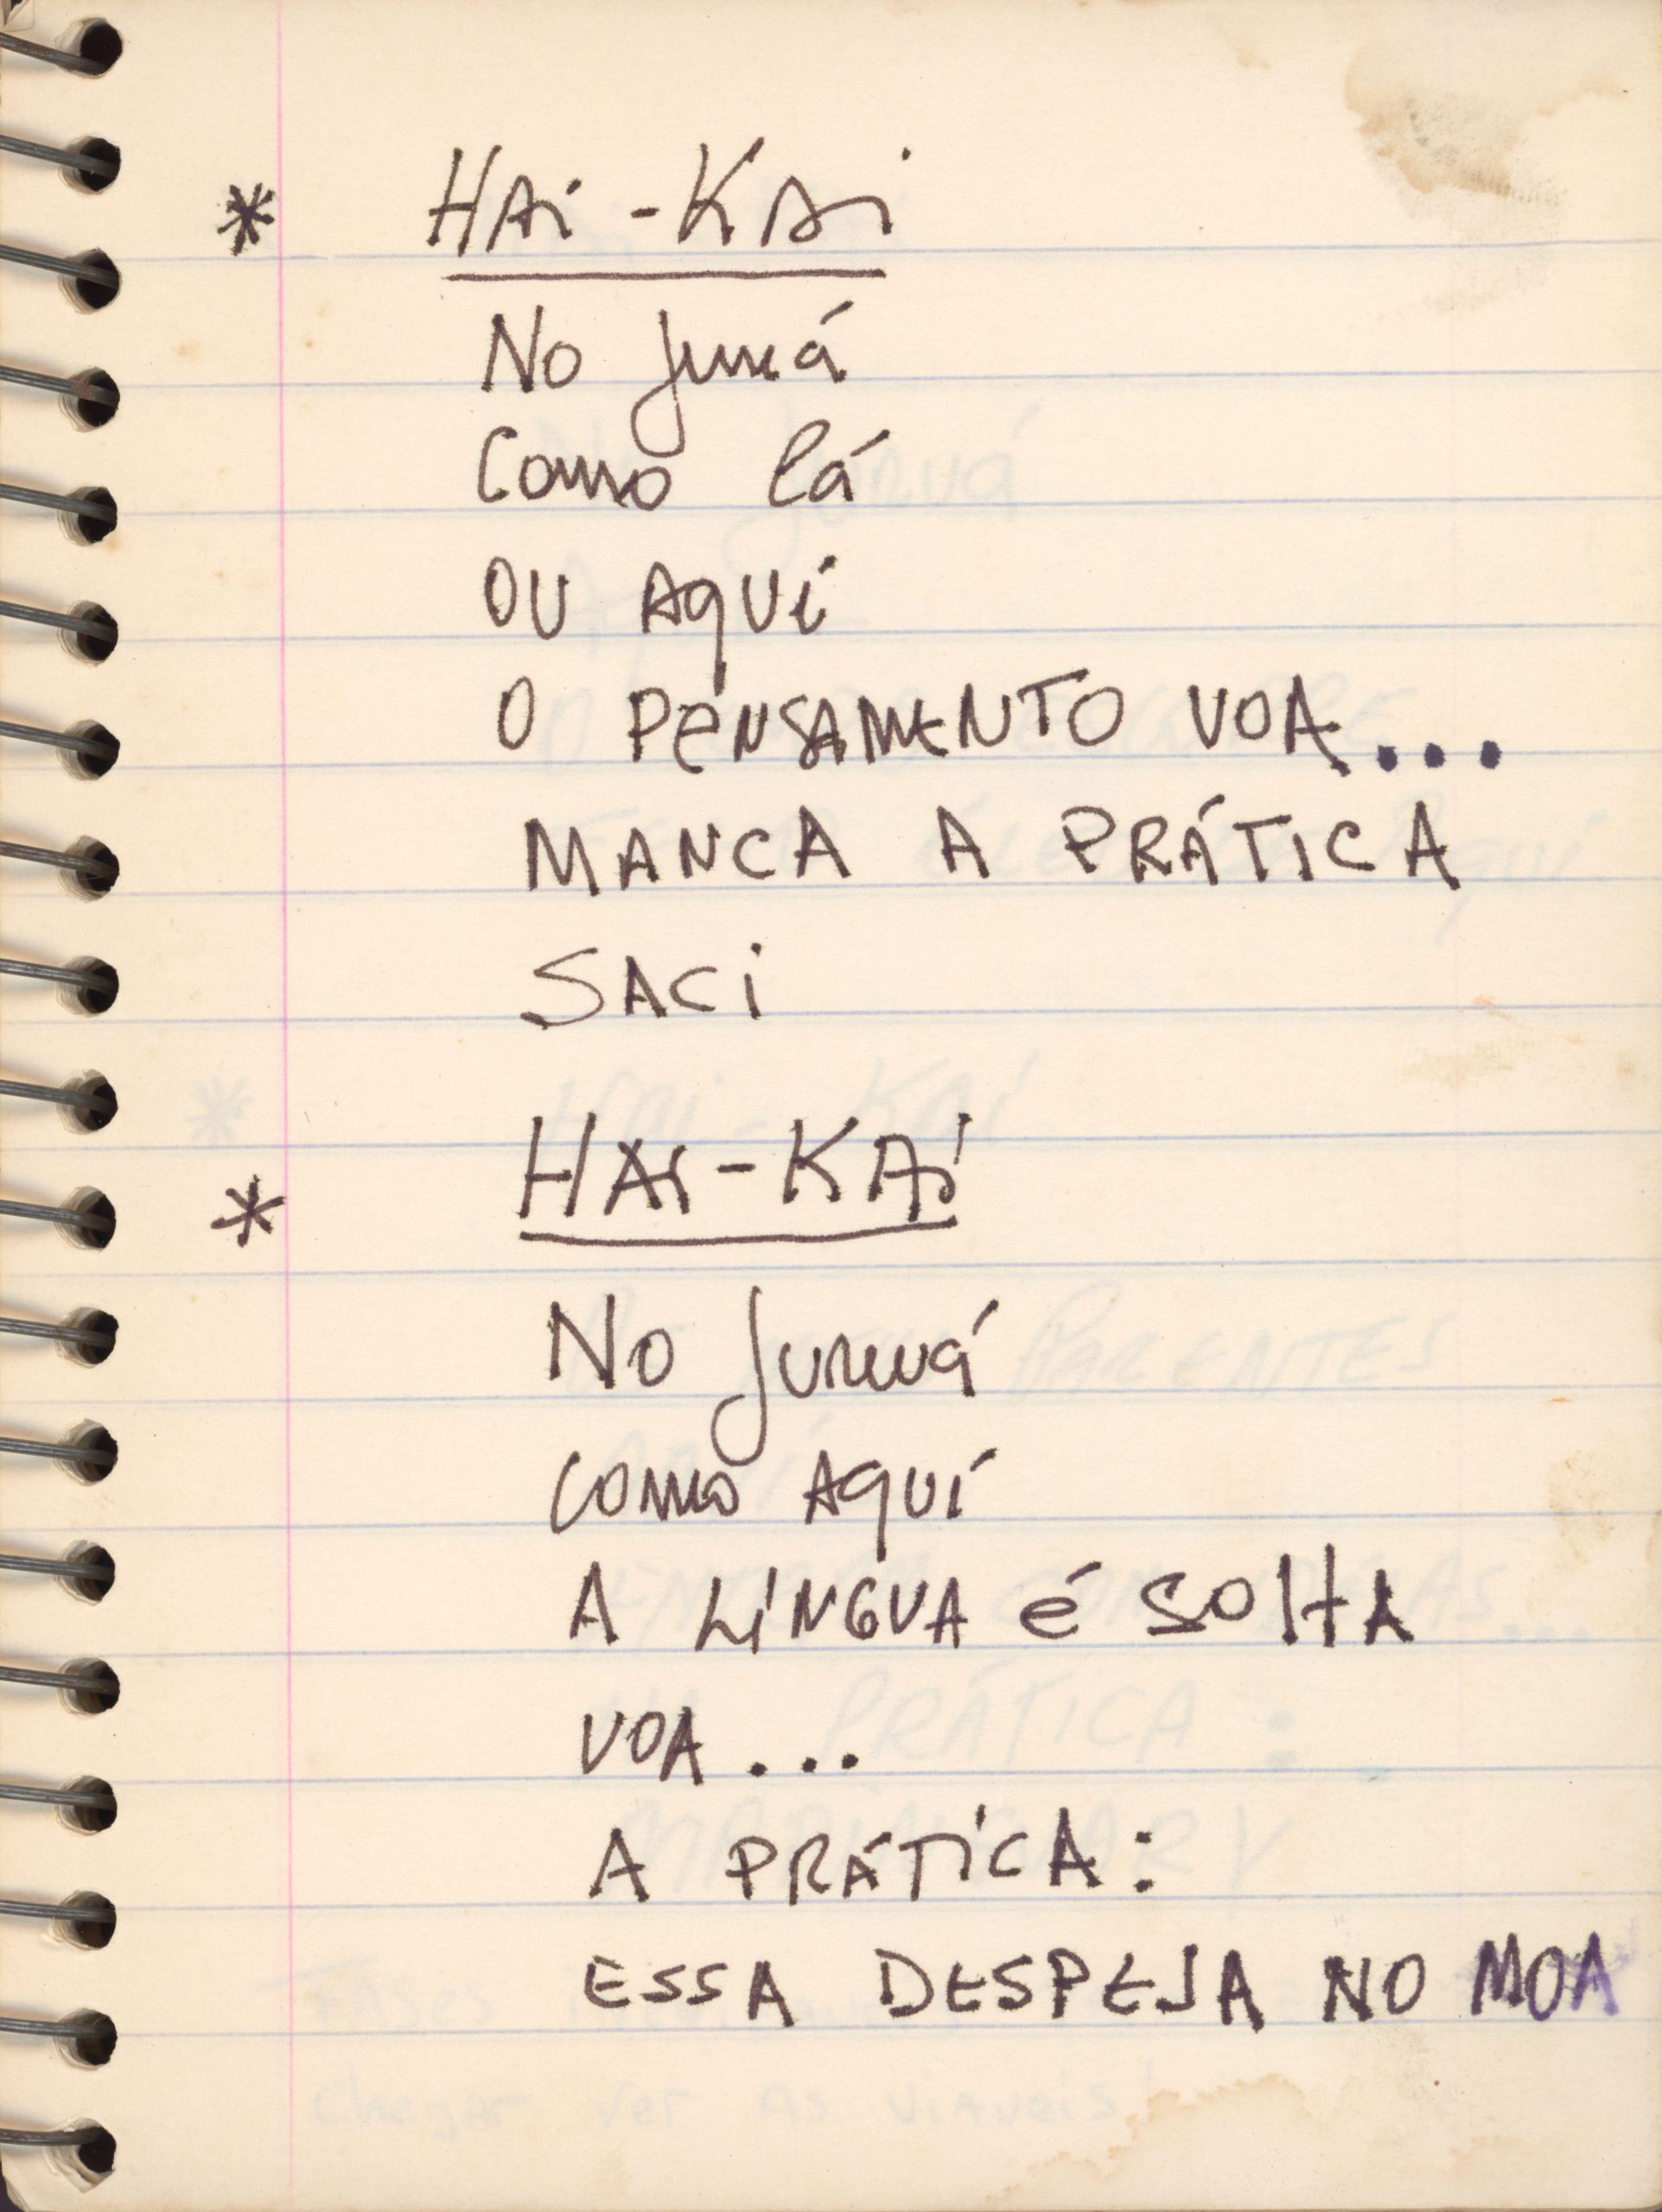 * HAi-KAi
No Juruá
Como lá
OU AQUi
O PENSAMENTO VOA...
MANCA A PRÁTICA
SACi
* HAi-KAi
No Juruá
COMO AQUÍ
A LÍNGUA é SOLtA
VOA...
A PRÁTiCA:
ESSA DESPEJA NO MOA